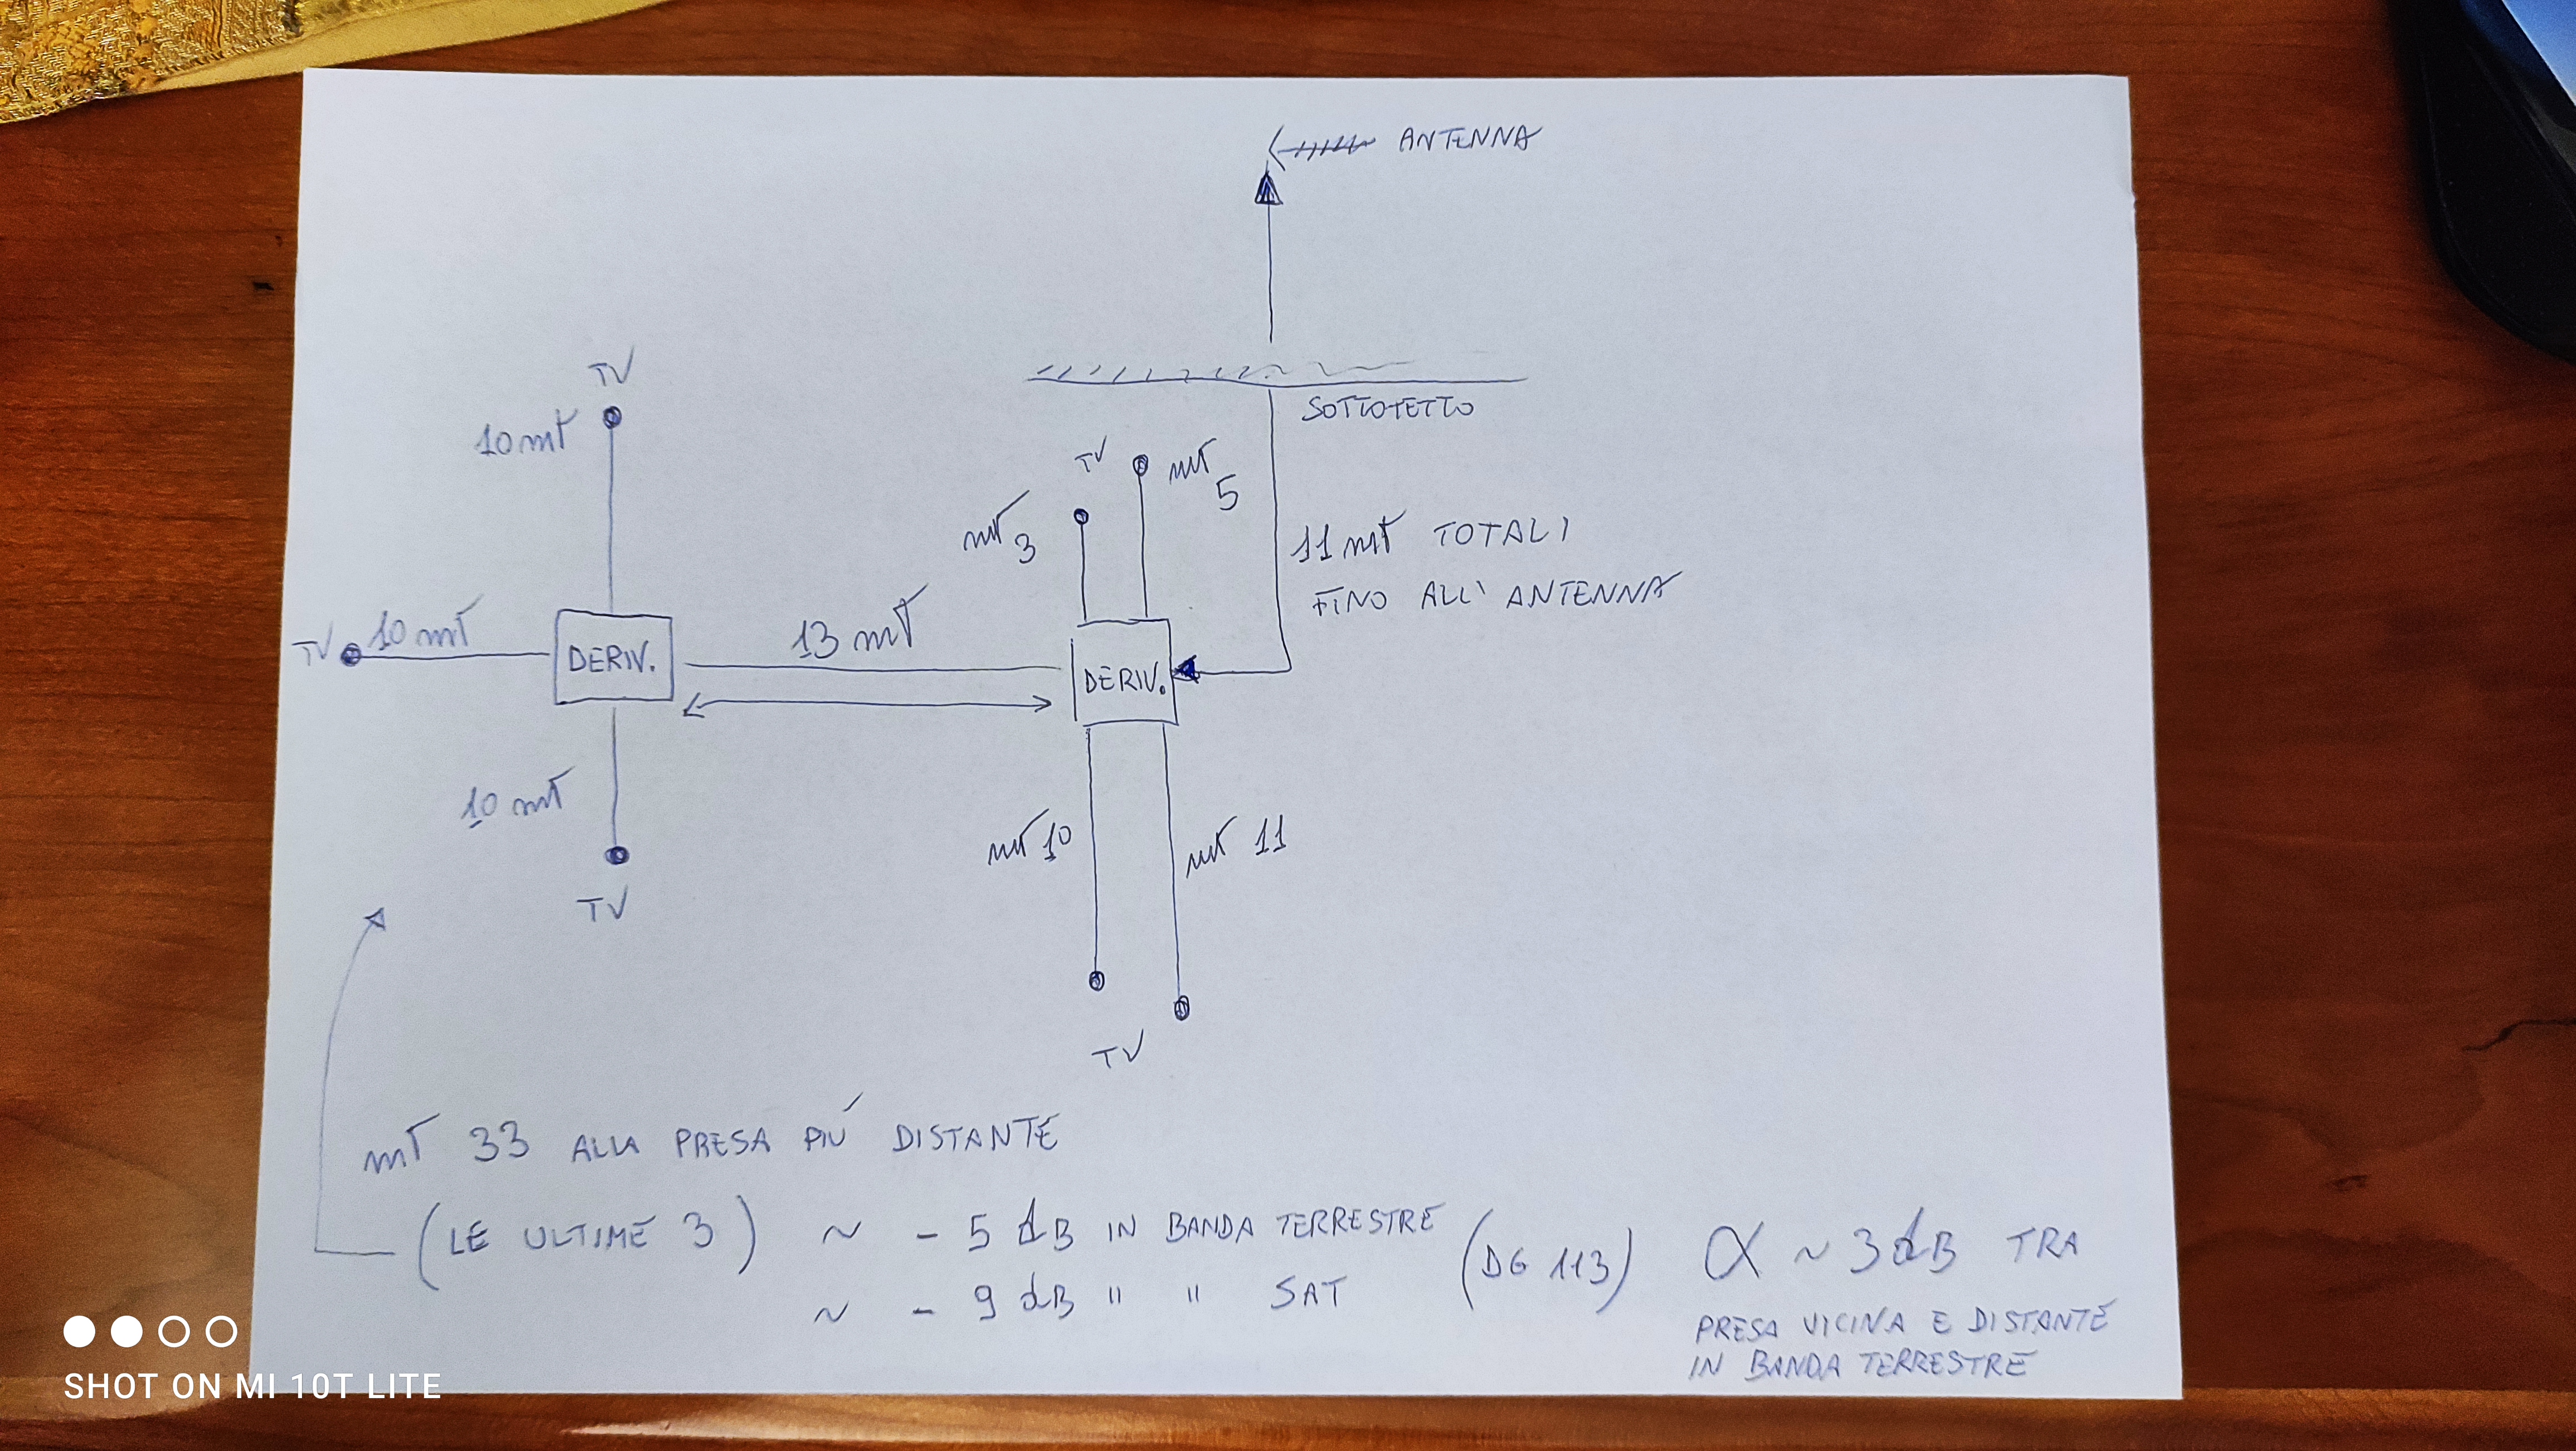 ANTENNA
SOTTOTETTO
TV
10 mt
TV
mt
5
mt
3
11 mt TOTALI
FINO ALL' ANTENNA
TV
10 mt
DERIV.
13 mt
DERIV.
10 mt
mt 10
mt 11
TV
TV
mt 33 ALLA PRESA PIÚ DISTANTE
(LE ULTIME 3) ~ - 5 dB IN BANDA TERRESTRE
~ - 9 dB " " SAT
(DG 113)
α ~ 3 dB TRA
PRESA VICINA E DISTANTE
IN BANDA TERRESTRE
SHOT ON MI 10T LITE